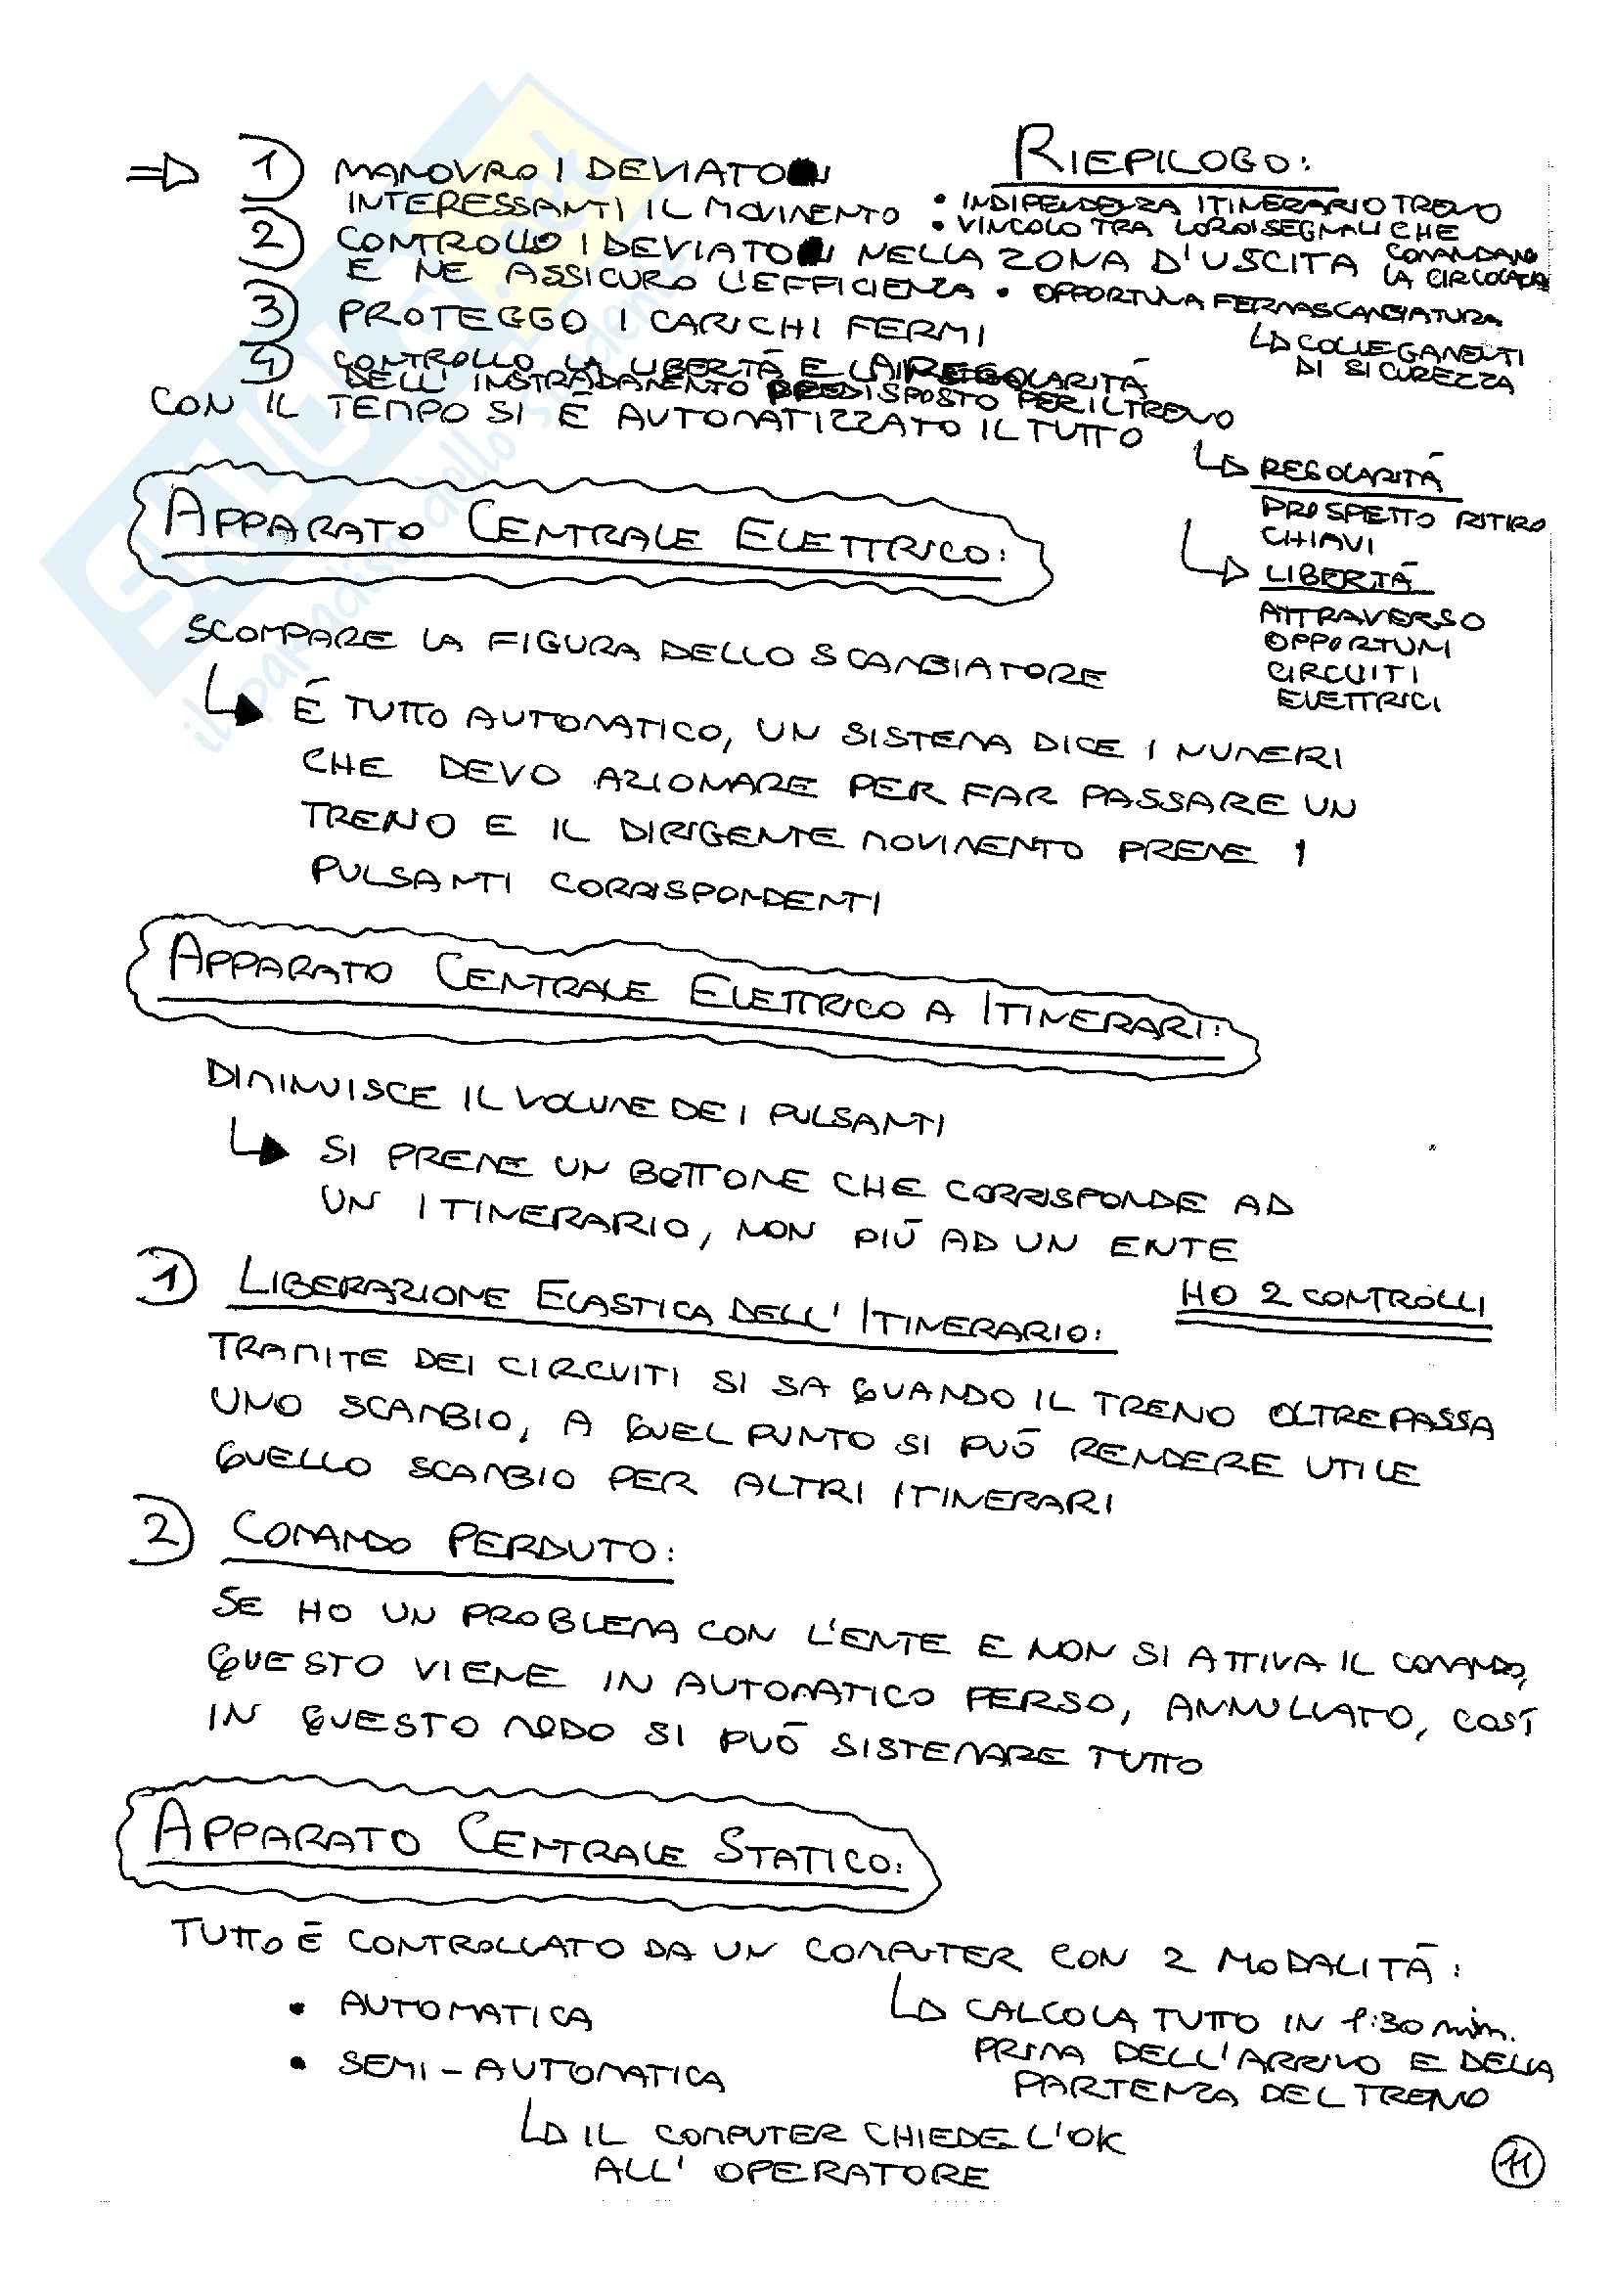 ⇒ 1) MANOVRO I DEVIATOI
INTERESSANTI IL MOVIMENTO
2) CONTROLLO I DEVIATOI NELLA ZONA D'USCITA
E NE ASSICURO L'EFFICIENZA
3) PROTEGGO I CARICHI FERMI
4) CONTROLLO LA LIBERTÀ E LA REGOLARITÀ
DELL'INSTRADAMENTO PREDISPOSTO PER IL TRENO
CON IL TEMPO SI È AUTOMATIZZATO IL TUTTO
RIEPILOGO:
• INDIPENDENZA ITINERARIO TRENO
• VINCOLO TRA LORO I SEGNALI CHE
COMANDANO
LA CIRCOLAZ
• OPPORTUNA FERMASCAMBIATURA
↳ COLLEGAMENTI
DI SICUREZZA
↳ REGOLARITÀ
PROSPETTO RITIRO
CHIAVI
↳ LIBERTÀ
ATTRAVERSO
OPPORTUNI
CIRCUITI
ELETTRICI
APPARATO CENTRALE ELETTRICO:
SCOMPARE LA FIGURA DELLO SCAMBIATORE
↳ È TUTTO AUTOMATICO, UN SISTEMA DICE I NUMERI
CHE DEVO AZIONARE PER FAR PASSARE UN
TRENO E IL DIRIGENTE MOVIMENTO PREME I
PULSANTI CORRISPONDENTI
APPARATO CENTRALE ELETTRICO A ITINERARI:
DIMINUISCE IL VOLUME DEI PULSANTI
↳ SI PREME UN BOTTONE CHE CORRISPONDE AD
UN ITINERARIO, NON PIÙ AD UN ENTE
1) LIBERAZIONE ELASTICA DELL'ITINERARIO: HO 2 CONTROLLI
TRAMITE DEI CIRCUITI SI SA QUANDO IL TRENO OLTREPASSA
UNO SCAMBIO, A QUEL PUNTO SI PUÒ RENDERE UTILE
QUELLO SCAMBIO PER ALTRI ITINERARI
2) COMANDO PERDUTO:
SE HO UN PROBLEMA CON L'ENTE E NON SI ATTIVA IL COMANDO,
QUESTO VIENE IN AUTOMATICO PERSO, ANNULLATO, COSÌ
IN QUESTO MODO SI PUÒ SISTEMARE TUTTO
APPARATO CENTRALE STATICO:
TUTTO È CONTROLLATO DA UN COMPUTER CON 2 MODALITÀ:
• AUTOMATICA
• SEMI-AUTOMATICA
↳ CALCOLA TUTTO IN 1:30 min.
PRIMA DELL'ARRIVO E DELLA
PARTENZA DEL TRENO
↳ IL COMPUTER CHIEDE L'OK
ALL'OPERATORE
11